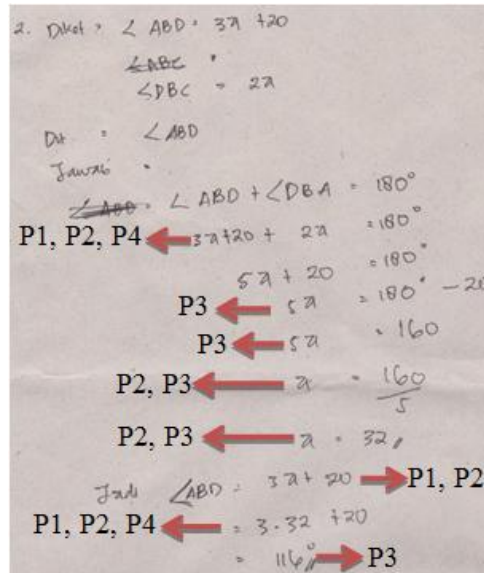 2. Diket = ∠ ABD = 3a + 20
∠ABC =
∠DBC = 2a
Dit = ∠ABD
Jawab =
∠ABD = ∠ ABD + ∠DBA = 180°
P1, P2, P4 3a+20 + 2a = 180°
5a + 20 = 180°
P3 5a = 180° - 20
P3 5a = 160
P2, P3 a = 160/5
P2, P3 a = 32,,
Jadi ∠ABD = 3a + 20 P1, P2
P1, P2, P4 = 3.32 + 20
= 116°,, P3